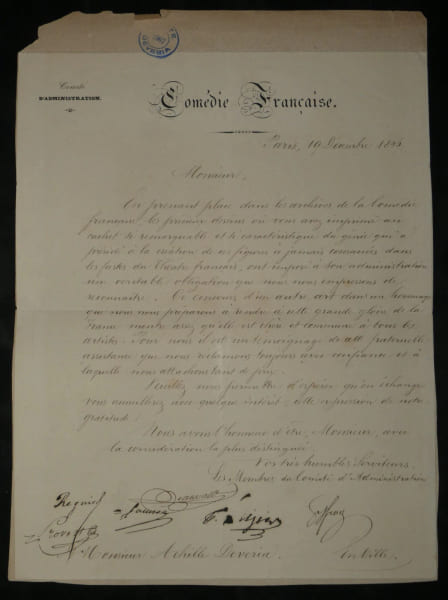 Comité
D'ADMINISTRATION.
Comédie Française.
Paris, 19 Décembre 184
Monsieur,
En prenant place dans les archives de la Comédie
française, les premiers dessins où vous avez imprimé un
cachet si remarquable et si caractéristique du génie qui a
présidé à la création de ces figures à jamais consacrées dans
les fastes du Théâtre français, ont imposé à son administration
une véritable obligation que nous nous empressons de
reconnaître. Ce concours d'un autre art dans un hommage
que nous nous préparons à rendre à cette grande gloire de la
France montre assez qu'elle est chère et commune à tous les
artistes. Pour nous il est un témoignage de cette fraternelle
assistance que nous réclamons toujours avec confiance et à
laquelle nous attachons tant de prix.
Veuillez nous permettre d'espérer qu'en échange
vous accueillerez avec quelque intérêt cette expression de notre
gratitude.
Nous avons l'honneur d'être, Monsieur, avec
la considération la plus distinguée.
Vos très humbles Serviteurs.
Les Membres du Comité d'Administration
Regnier
Geffroy
Provost
Monsieur Achille Devéria. En Ville.